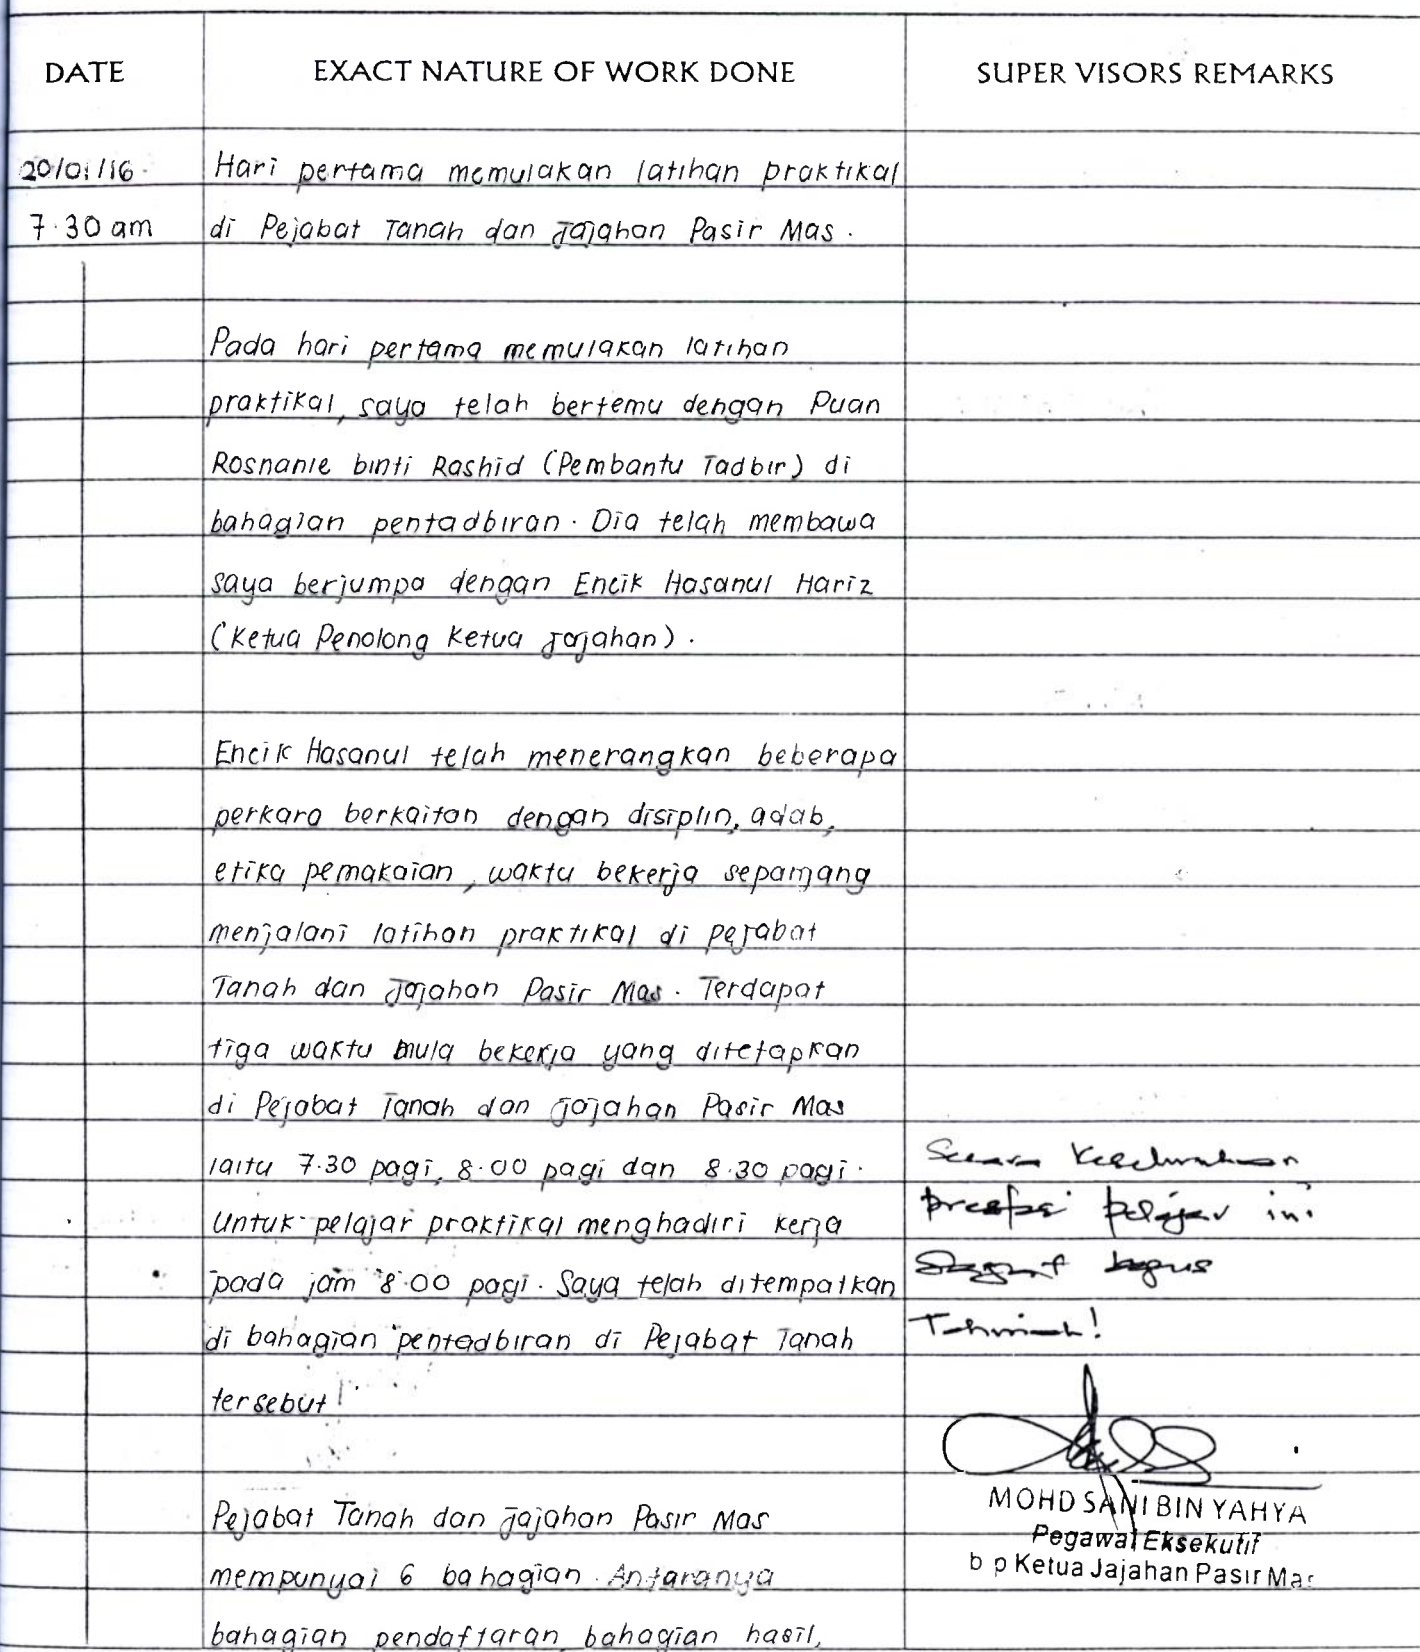 DATE EXACT NATURE OF WORK DONE SUPER VISORS REMARKS
20/01/16 Hari pertama memulakan latihan praktikal
7.30 am di Pejabat Tanah dan Jajahan Pasir Mas.
Pada hari pertama memulakan latihan
praktikal, saya telah bertemu dengan Puan
Rosnanie binti Rashid (Pembantu Tadbir) di
bahagian pentadbiran. Dia telah membawa
saya berjumpa dengan Encik Hasanul Hariz
(Ketua Penolong Ketua Jajahan).
Encik Hasanul telah menerangkan beberapa
perkara berkaitan dengan disiplin, adab,
etika pemakaian, waktu bekerja sepanjang
menjalani latihan praktikal di pejabat
Tanah dan Jajahan Pasir Mas. Terdapat
tiga waktu mula bekerja yang ditetapkan
di Pejabat Tanah dan Jajahan Pasir Mas
iaitu 7.30 pagi, 8.00 pagi dan 8.30 pagi.
Untuk pelajar praktikal menghadiri kerja
pada jam 8.00 pagi. Saya telah ditempatkan
di bahagian pentadbiran di Pejabat Tanah
tersebut.
Pejabat Tanah dan Jajahan Pasir Mas
mempunyai 6 bahagian. Antaranya
bahagian pendaftaran, bahagian hasil,
Secara Keseluruhan
prestasi pelajar ini
Sangat bagus
MOHD SANI BIN YAHYA
Pegawai Eksekutif
b p Ketua Jajahan Pasir Mas